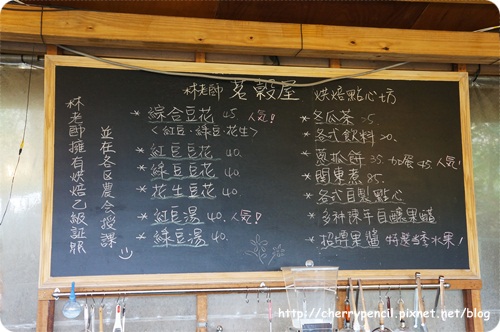 林老師 茗穀屋 烘焙點心坊
林老師擁有烘焙乙級証照
並在各區農会授課
* 綜合豆花 45. 人氣!
<紅豆·綠豆·花生>
* 紅豆豆花 40.
* 綠豆豆花 40.
* 花生豆花 40.
* 紅豆湯 40. 人氣!
* 綠豆湯 40.
* 冬瓜茶 25.
* 各式飲料 20.
* 蔥瓜餅 35. 加蛋 45. 人氣!
* 關東煮 85.
* 各式自製點心
* 多种陳年自釀果醋
* 招牌果醬 特選当季水果!
http://cherrypencil.pixnet.net/blog